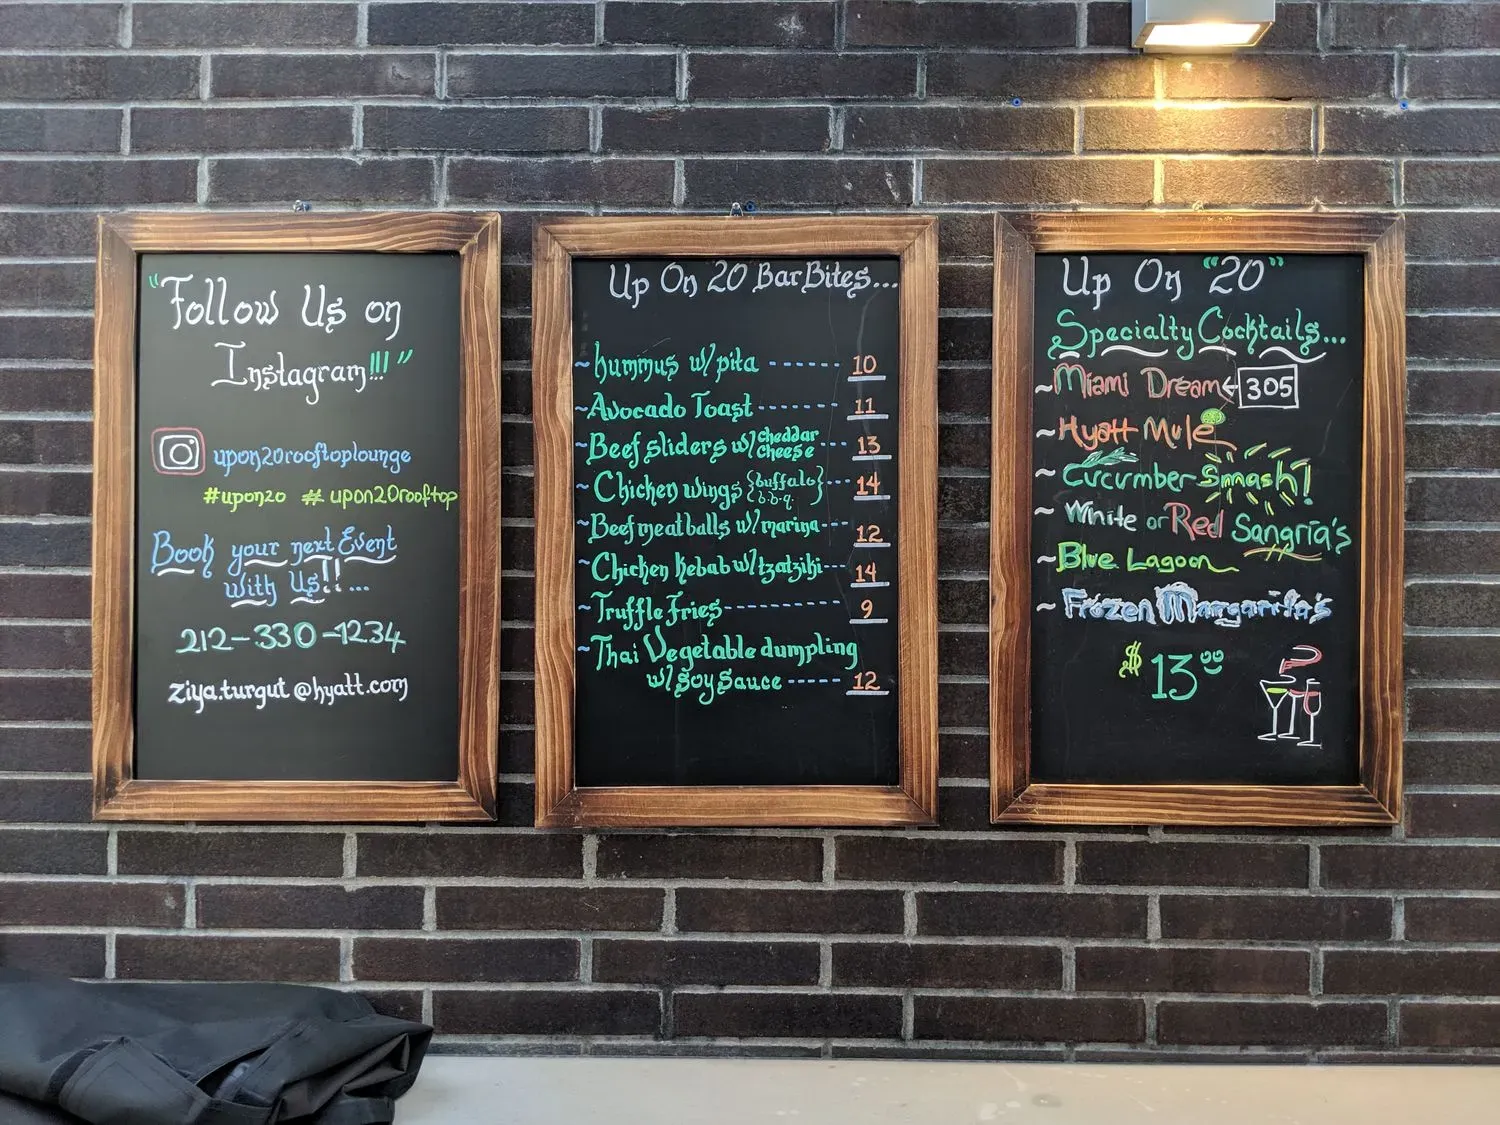 "Follow Us on
Instagram!!!"
upon20rooftoplounge
#upon20 #upon20rooftop
Book your next Event
with Us!!...
212-330-1234
ziya.turgut@hyatt.com
Up On 20 Bar Bites...
~hummus w/pita ------ 10
~Avocado Toast ------ 11
~Beef sliders w/cheddar cheese --- 13
~Chicken wings {buffalo b.b.q.} --- 14
~Beef meatballs w/marina --- 12
~Chicken Kebab w/tzatziki --- 14
~Truffle Fries ---------- 9
~Thai Vegetable dumpling
w/soy sauce ----- 12
Up On "20"
Specialty Cocktails...
~Miami Dream ← 305
~Hyatt Mule
~Cucumber Smash!
~White or Red Sangria's
~Blue Lagoon
~Frozen Margarita's
$13.00